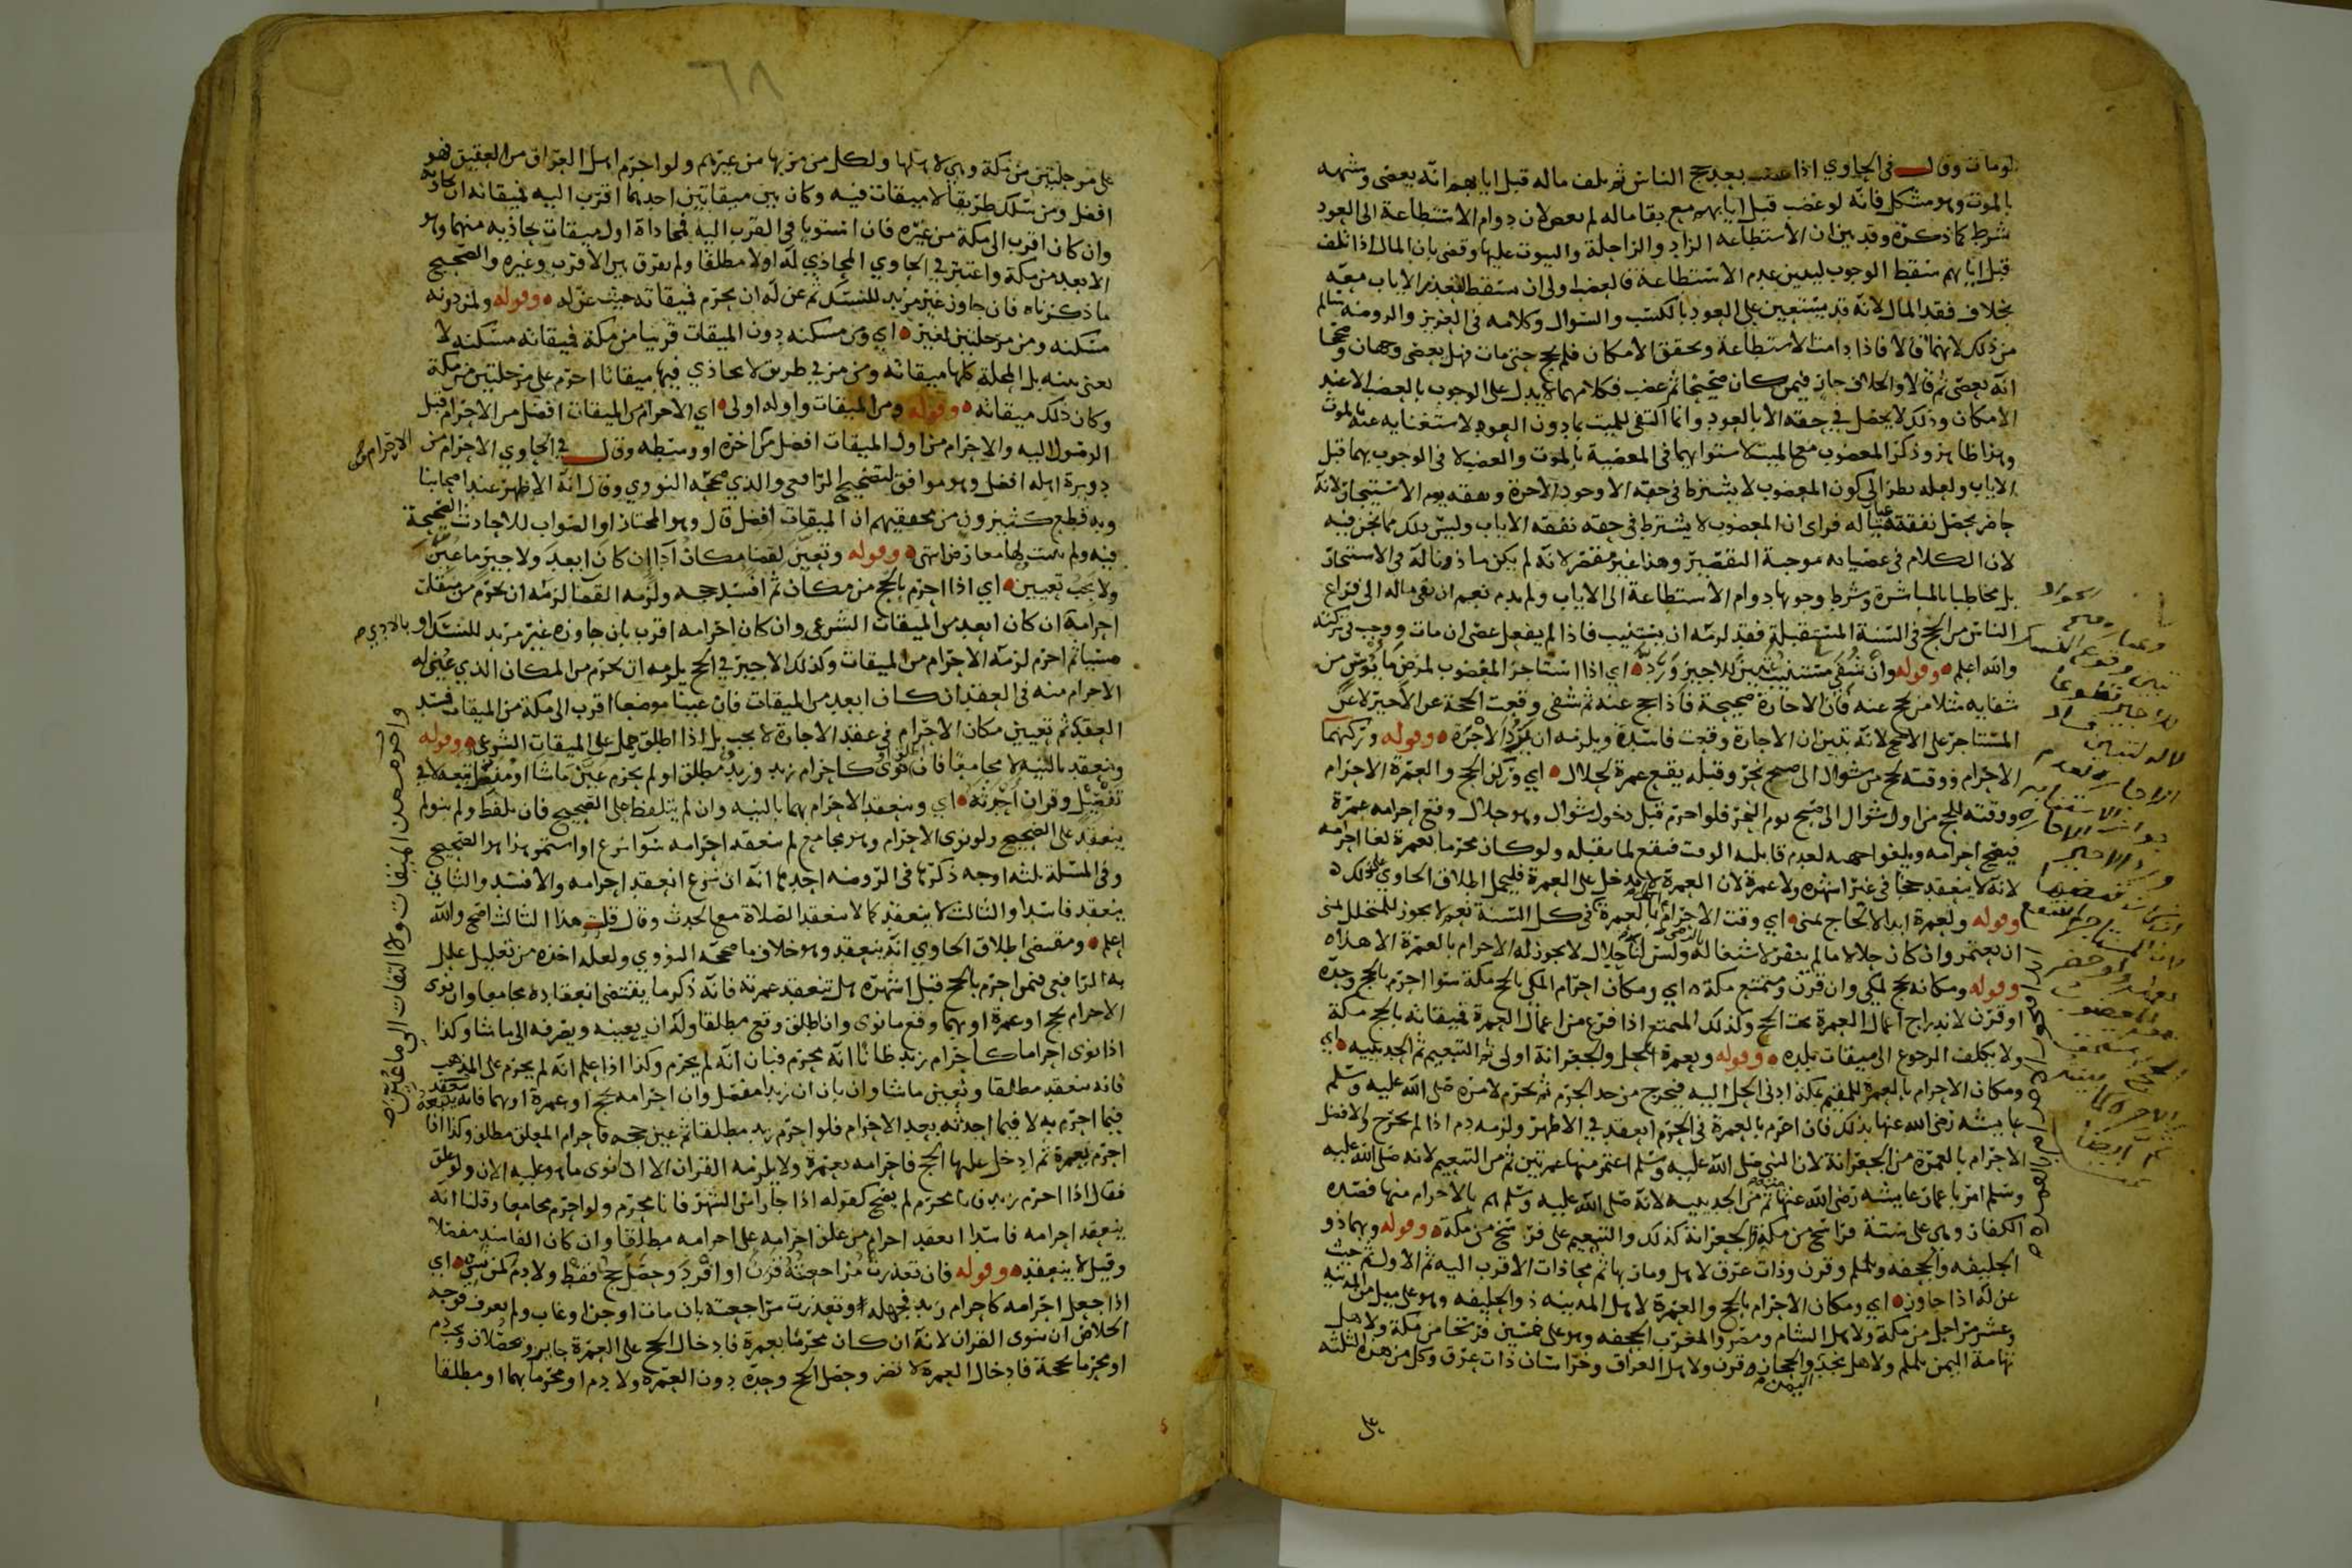 لومات وقال في الحاوي اذا عضب بعد حج الناس ثم تلف ماله قبل ايابهم انه يعصى وشبهه
بالموت وهو مشكل فانه لو عضب قبل ايابهم مع بقا ماله لم يعص لان دوام الاستطاعة الى العود
شرط كما ذكره وقد بين ان الاستطاعه الزاد والراحلة والبيوت عليها وقضى بان المال اذا تلف
قبل ايابهم سقط الوجوب لتبين عدم الاستطاعة فالعضب اولى ان يسقط لتعذر الاياب معه
بخلاف فقد المال لانه قد يستعين على العود بالكسب والسوال وكلامه في العزيز والروضه سالم
من ذلك لانهما قالا فاذا دامت الاستطاعة وتحقق الامكان فلم يحج حتى مات فهل يعصى وجهان وصححا
انه يعصى ثم قالا والخلاف جار فيمن كان صحيحا ثم عضب فكلامهما يدل على الوجوب بالعضب الا عند
الامكان وذلك لا يحصل في حقه الا بالعود وانما اكتفى للميت بما دون العود لاستغنايه عنه بالموت
وهذا ظاهر وذكر المعضوب مع الميت لاستوايهما في المعصية بالموت والعضب لا في الوجوب بهما قبل
الاياب ولعله نظر الى كون المعضوب لا يشترط في حقه الا وجود الاجرة ونفقه يوم الاستيجار لانه
حاضر يحصل نفقة عياله فراى ان المعضوب لا يشترط في حقه نفقه الاياب وليس ذلك مما نحن فيه
لان الكلام في عصيانه موجبة التقصير وهذا غير مقصر لانه لم يكن ماذونا له في الاستيجار
بل مخاطبا بالمباشرة وشرط وجوبها دوام الاستطاعة الى الاياب ولم يدم نعم ان بقى ماله الى فراغ
الناس من الحج في السنة المستقبلة فقد لزمه ان يستنيب فاذا لم يفعل عصى ان مات ووجب في تركته
والله اعلم وقوله وان شفي مستنيب تبين للاجير ورد اي اذا استاجر المعضوب لمرض مايوس من
شفايه مثلا من يحج عنه فان الاجارة صحيحة فاذا حج عنه ثم شفى وقعت الحجة عن الاجير لا عن
المستاجر على الاصح لانه تبين ان الاجارة وقعت فاسدة ويلزمه ان يرد الاجرة وقوله وركنهما
الاحرام ووقته لحج من شوال الى صبح نحر وقبله يقع عمرة لحلال اي وركن الحج والعمرة الاحرام
ووقته للحج من اول شوال الى صبح يوم النحر فلو احرم قبل دخول شوال وهو حلال وقع احرامه عمرة
فيصح احرامه ويلغوا حجه لعدم قابليه الوقت فيقع لما يقبله ولو كان محرما بعمرة لغا احرامه
لانه لا ينعقد حجا في غير اشهره ولا عمرة لان العمرة لا تدخل على العمرة فليحمل اطلاق الحاوي على ذلك
وقوله ولعمرة ابدا لا لحاج بمنى اي وقت الاحرام بالعمرة في كل السنة نعم لا يجوز للمتحلل بمنى
ان يعتمر وان كان حلالا ما لم ينفر لاشتغاله وليس لنا حلال لا يجوز له الاحرام بالعمرة الا هذا
وقوله ومكانه لحج لمكي وان قرن ومتمتع مكة اي ومكان احرام المكي بالحج مكة سوا احرم بالحج وحده
او قرن لاندراج اعمال العمرة تحت الحج وكذلك المتمتع اذا فرغ من اعمال العمرة فميقاته بالحج مكة
ولا يكلف الرجوع الى ميقات بلده وقوله ولعمرة الحل والجعرانة اولى ثم التنعيم ثم الحديبيه اي
ومكان الاحرام بالعمرة للمقيم بمكة ادنى الحل اليه فيخرج من حد الحرم ثم يحرم لامره صلى الله عليه وسلم
عايشه رضي الله عنها بذلك فان احرم بالعمرة في الحرم انعقد في الاظهر ولزمه دم اذا لم يخرج والافضل
الاحرام بالعمرة من الجعرانة لان النبي صلى الله عليه وسلم اعتمر منها عمرتين ثم من التنعيم لانه صلى الله عليه
وسلم امر باعمار عايشه رضي الله عنها منه ثم من الحديبيه لانه صلى الله عليه وسلم هم بالاحرام منها فصده
الكفار وهي على ستة فراسخ من مكة والجعرانة كذلك والتنعيم على فرسخ من مكة وقوله وبهما ذو
الحليفه والجحفه ويلملم وقرن وذات عرق لاهل ومار بها ثم محاذات الاقرب اليه ثم الاول ثم حيث
عن له اذا جاوز اي ومكان الاحرام بالحج والعمرة لاهل المدينه ذو الحليفه وهو على ميل من المدينه
وعشر مراحل من مكة ولاهل الشام ومصر والمغرب الجحفه وهو على خمسين فرسخا من مكة ولاهل
تهامة اليمن يلملم ولاهل نجد والحجاز قرن ولاهل العراق وخراسان ذات عرق وكل من هذه الثلثه
اليمن
على
٦٨
على مرحلتين من مكة وهي لاهلها ولكل من مر بها من غيرهم ولو احرم اهل العراق من العقيق فهو
افضل ومن سلك طريقا لا ميقات فيه وكان بين ميقاتين احدهما اقرب اليه فميقاته ان يحاذيه
وان كان اقرب الى مكة من غيره فان استويا في القرب اليه فمحاذاة اول ميقات يحاذيه منهما وهو
الابعد من مكة واعتبر في الحاوي المحاذي له اولا مطلقا ولم يفرق بين الاقرب وغيره والصحيح
ما ذكرناه فان جاوز غير مريد للنسك ثم عن له ان يحرم فميقاته حيث عن له وقوله ولمن دونه
مسكنه ومن مرحلتين لغير اي ومن مسكنه دون الميقات قريبا من مكة فميقاته مسكنه لا
يعنى بيته بل المحلة كلها ميقاته ومن مر في طريق لا يحاذي فيها ميقاتا احرم على مرحلتين من مكة
وكان ذلك ميقاته وقوله ومن الميقات واوله اولى اي الاحرام من الميقات افضل من الاحرام قبل
الوصول اليه والاحرام من اول الميقات افضل من اخره او وسطه وقال في الحاوي الاحرام من
دويرة اهله افضل وهو موافق لتصحيح الرافعي والذي صححه النووي وقال انه الاظهر عند اصحابنا
وبه قطع كثيرون من محققيهم ان الميقات افضل قال وهو المختار او الصواب للاحاديث الصحيحة
فيه ولم يثبت لها معارض انتهى وقوله وتعين لقضا مكان ادا ان كان ابعد ولاجير ما عين
ولا يجب تعيين اي اذا احرم بالحج من مكان ثم افسد حجه ولزمه القضا لزمه ان يحرم من مثل
احرامه ان كان ابعد من الميقات الشرعي وان كان احرامه اقرب بان جاوزه غير مريد للنسك او
مسيا ثم احرم لزمه الاحرام من الميقات وكذلك الاجير في الحج يلزمه ان يحرم من المكان الذي عين له
الاحرام منه في العقد ان كان ابعد من الميقات فان عينا موضعا اقرب الى مكة من الميقات فسد
العقد ثم تعيين مكان الاحرام في عقد الاجارة لا يجب بل اذا اطلق حمل على الميقات الشرعي وقوله
وينعقد بالنيه لا مجامعا فان نوى كاحرام زيد وزيد مطلق او لم يحرم عين ما شا او مفصل تبعه لا في
تفصيل وقران احدثه اي وينعقد الاحرام بهما بالنيه وان لم يتلفظ على الصحيح فان تلفظ ولم ينو لم
ينعقد على الصحيح ولو نوى الاحرام وهو مجامع لم ينعقد احرامه سوا نزع او استمر هذا هو الصحيح
وفي المسئلة ثلثه اوجه ذكرها في الروضه احدها انه ان نزع انعقد احرامه والا فسد والثاني
ينعقد فاسدا والثالث لا ينعقد كما لا تنعقد الصلاة مع الحدث وقال قلت هذا الثالث اصح والله
اعلم ومقتضى اطلاق الحاوي انه ينعقد وهو خلاف ما صححه النووي ولعله اخذه من تعليل علل
به الرافعي فيمن احرم بالحج قبل اشهره هل تنعقد عمرته فانه ذكر ما يقتضى انعقاده مجامعا وان نوى
الاحرام بحج او عمرة او بهما وقع ما نوى وان اطلق وقع مطلقا وله ان يعينه ويصرفه الى ما شا وكذا
اذا نوى احراما كاحرام زيد ظانا انه محرم فبان انه لم يحرم وكذا اذا علم انه لم يحرم على المذهب
فانه ينعقد مطلقا ويعين ما شا وان بان ان زيدا مفصل وان احرامه بحج او عمرة او بهما فانه يتبعه
فيما احرم به لا فيما احدثه بعد الاحرام فلو احرم زيد مطلقا ثم عين حجه فاحرام المعلق مطلق وكذا اذا
احرم بعمرة ثم ادخل عليها الحج فاحرامه بعمرة ولا يلزمه القران الا ان نوى ما هو عليه الان ولو علق
فقال اذا احرم زيد فانا محرم لم يصح كقوله اذا جا راس الشهر فانا محرم ولو احرم مجامعا وقلنا انه
ينعقد احرامه فاسدا انعقد احرام من علق احرامه على احرامه مطلقا وان كان الفاسد مفصلا
وقيل لا ينعقد وقوله فان تعذرت مراجعته قرن او افرد وحصل حج فقط ولا دم كمن نسي اي
اذا جعل احرامه كاحرام زيد فجهله وتعذرت مراجعته بان مات او جن او غاب ولم يعرف فوجه
الخلاص ان ينوى القران لانه ان كان محرما بعمرة فادخال الحج على العمرة جايز ويحصلان ويجب دم
او محرما بحجة فادخال العمرة لا يضر وحصل الحج وحده دون العمره ولا دم او محرما بهما او مطلقا